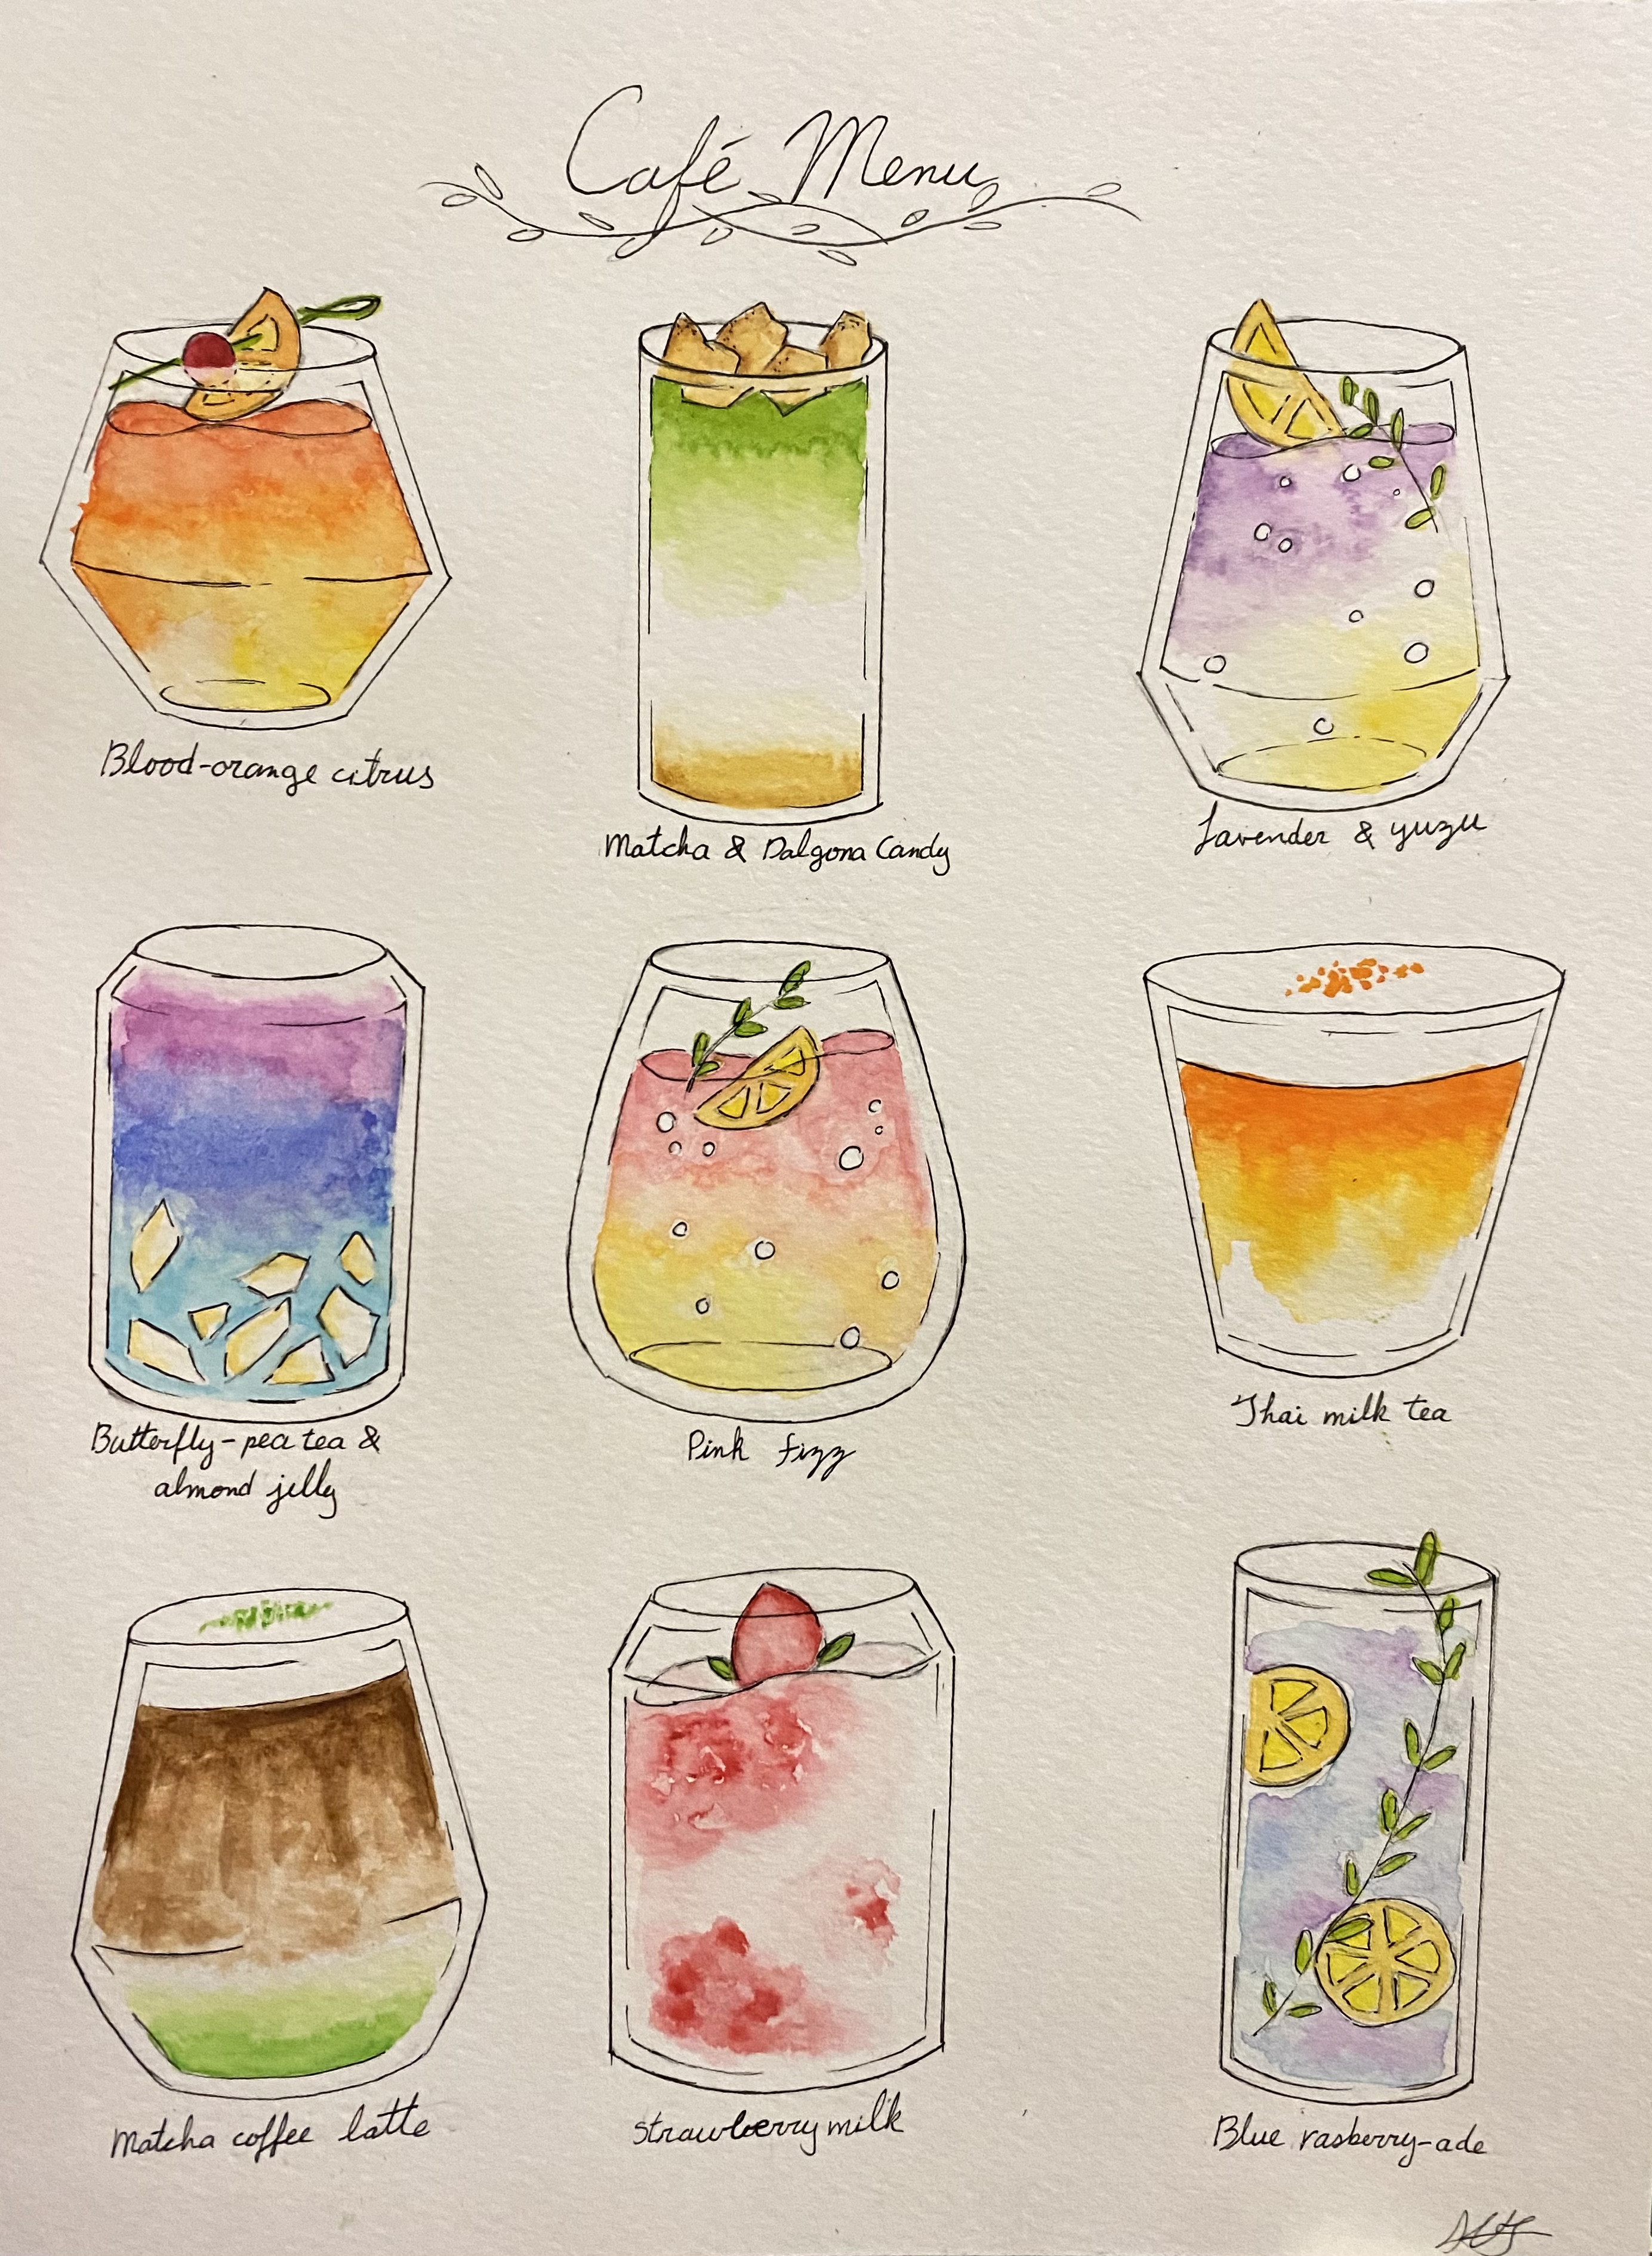 Café Menu
Blood-orange citrus
Matcha & Dalgona Candy
Lavender & yuzu
Butterfly-pea tea &
almond jelly
Pink fizz
Thai milk tea
Matcha coffee latte
strawberry milk
Blue rasberry-ade